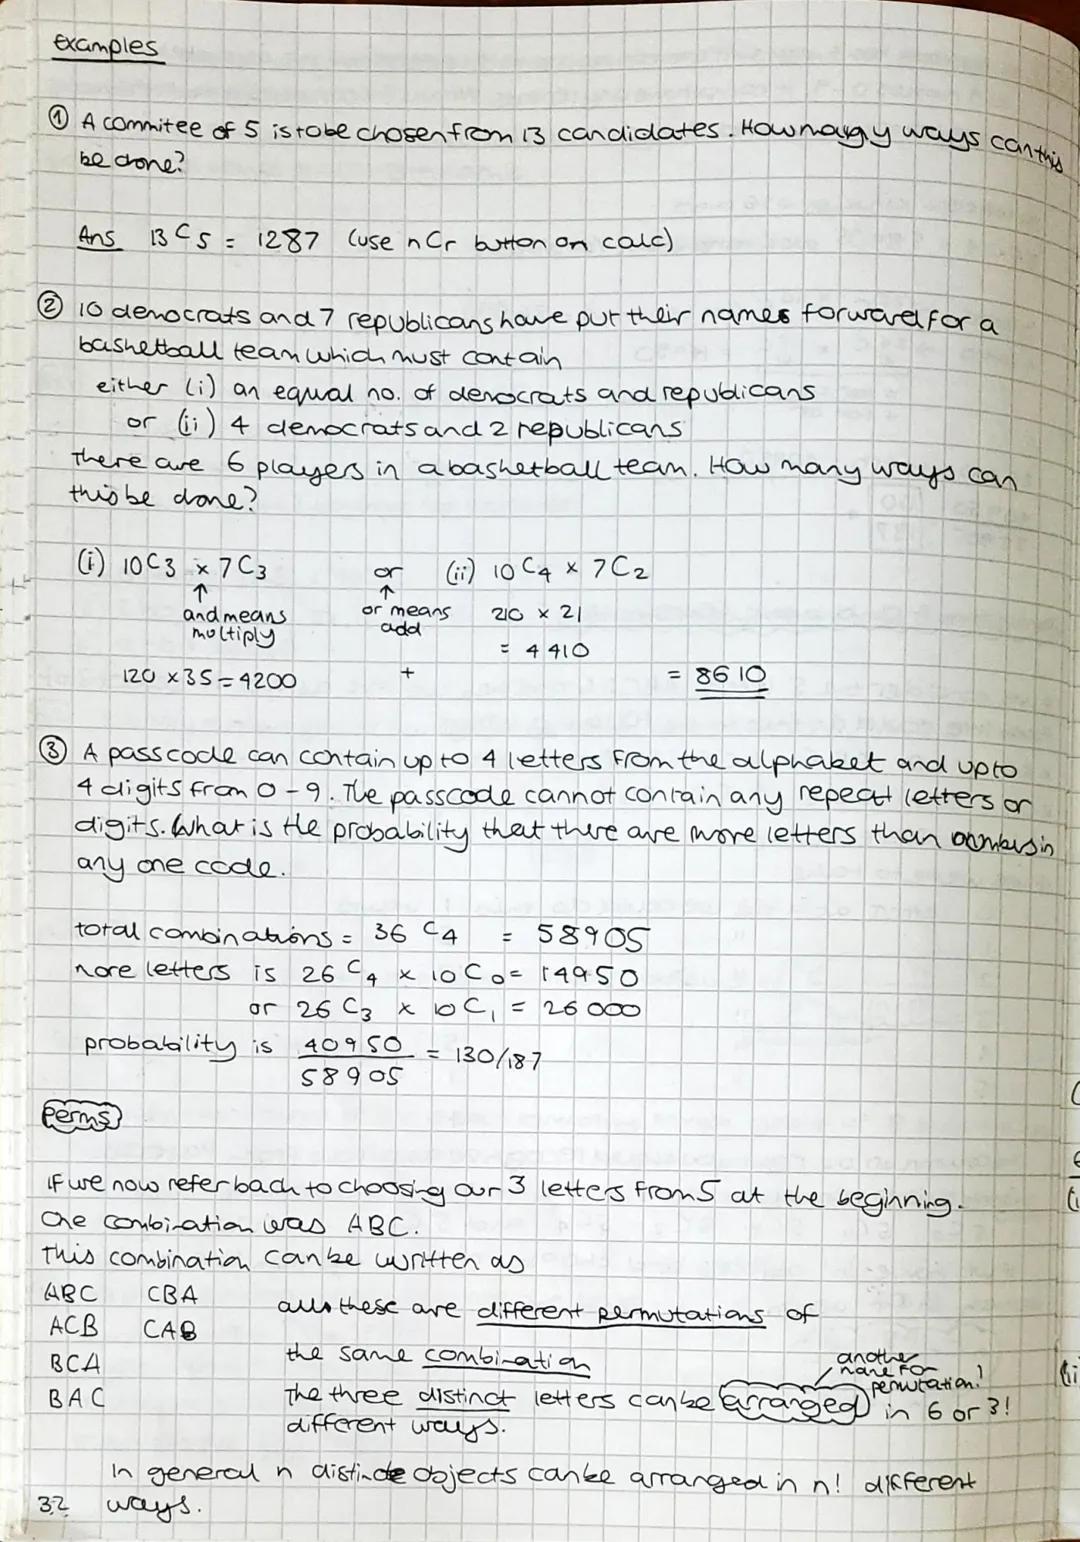 examples
① A commitee of 5 is to be chosen from 13 candidates. How many ways can this
be done?
Ans 13C5 = 1287 (use nCr button on calc)
② 10 democrats and 7 republicans have put their names forward for a
basketball team which must contain
either (i) an equal no. of democrats and republicans
or (ii) 4 democrats and 2 republicans
there are 6 players in a basketball team. How many ways can
this be done?
(i) 10C3 × 7C3 or (ii) 10C4 × 7C2
↑ ↑
and means or means 210 × 21
multiply add
= 4410
120 × 35 = 4200 + = 8610
③ A passcode can contain up to 4 letters from the alphabet and up to
4 digits from 0-9. The passcode cannot contain any repeat letters or
digits. What is the probability that there are more letters than numbers in
any one code.
total combinations = 36C4 = 58905
more letters is 26C4 × 10C0 = 14950
or 26C3 × 10C1 = 26000
probability is 40950/58905 = 130/187
Perms
if we now refer back to choosing our 3 letters from 5 at the beginning.
One combination was ABC.
This combination can be written as
ABC CBA
ACB CAB
BCA
BAC
all these are different permutations of
the same combination
another name for permutation!
The three distinct letters can be arranged in 6 or 3!
different ways.
In general n distinct objects can be arranged in n! different
ways.
32